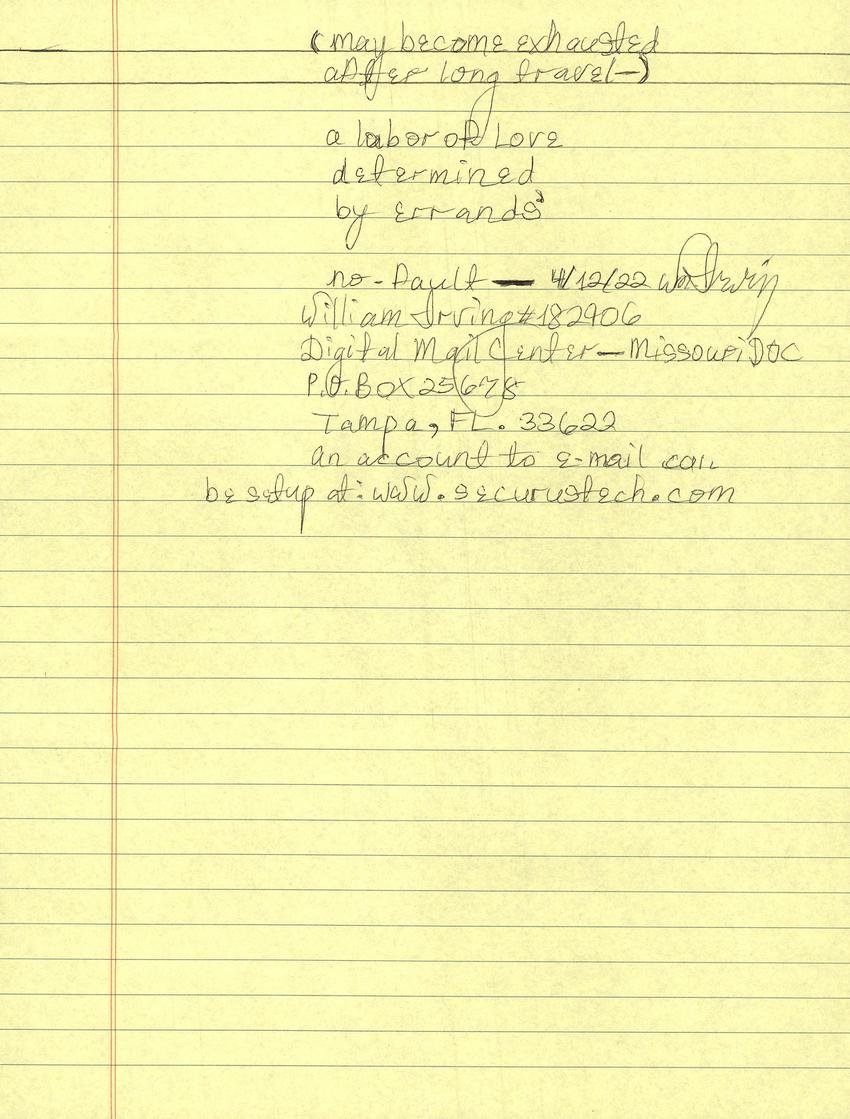 (may become exhausted
after long travel—)
a labor of Love
determined
by errands'
no-fault — 4/12/22 Wm Irving
William Irving #182906
Digital Mail Center—Missouri DOC
P.O. BOX 25678
Tampa, FL. 33622
an account to e-mail can
be setup at: www.securustech.com